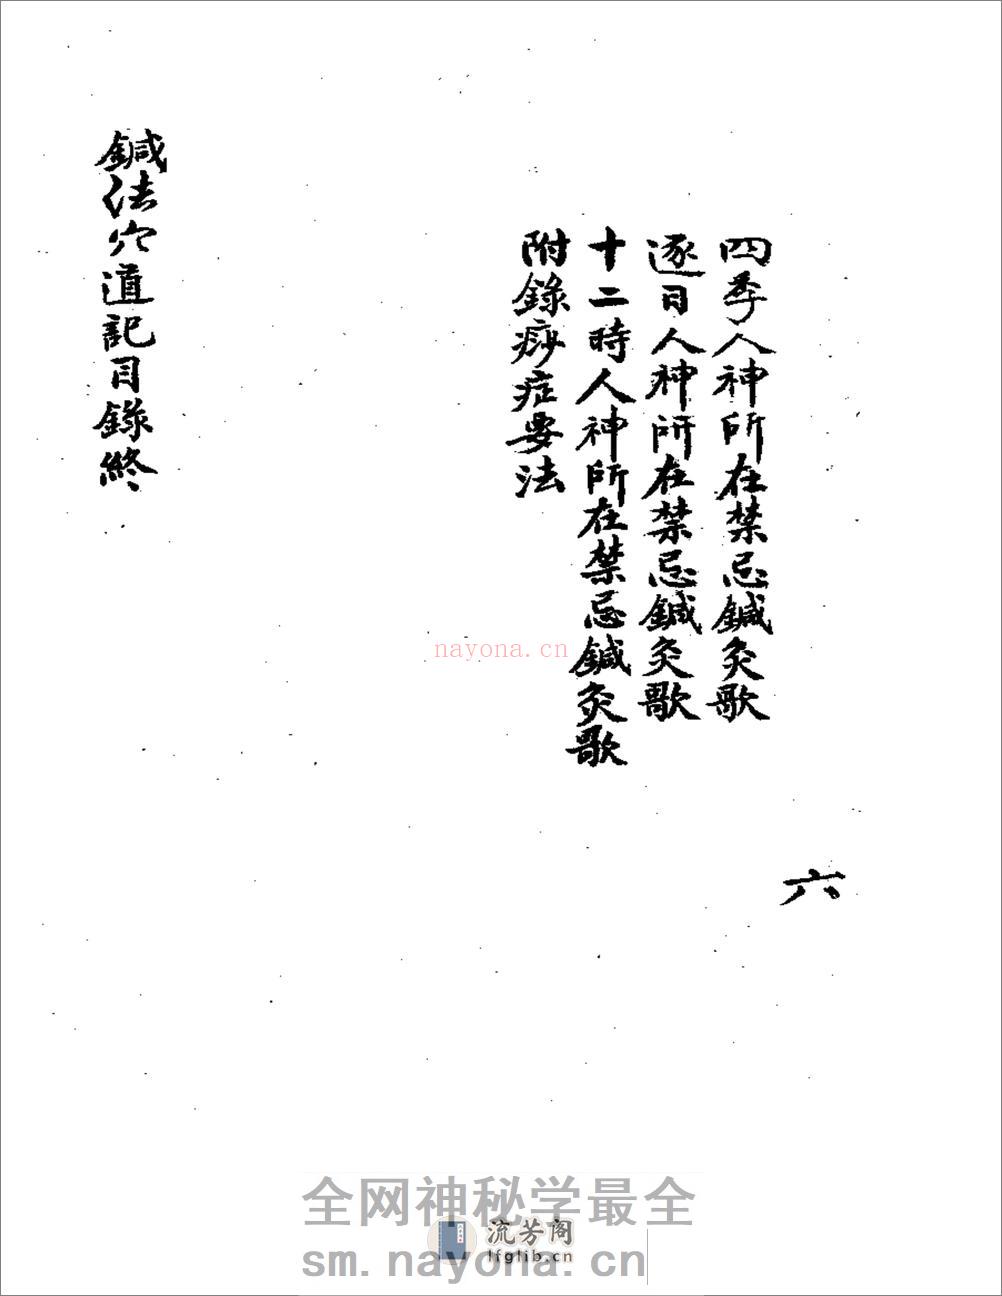 四季人神所在禁忌鍼灸歌
逐日人神所在禁忌鍼灸歌
十二時人神所在禁忌鍼灸歌
附錄痧症要法
鍼法穴道記目錄終
六
nayona.cn
全网神秘学最全
流芳阁
lfglib.cn
sm.nayona.cn